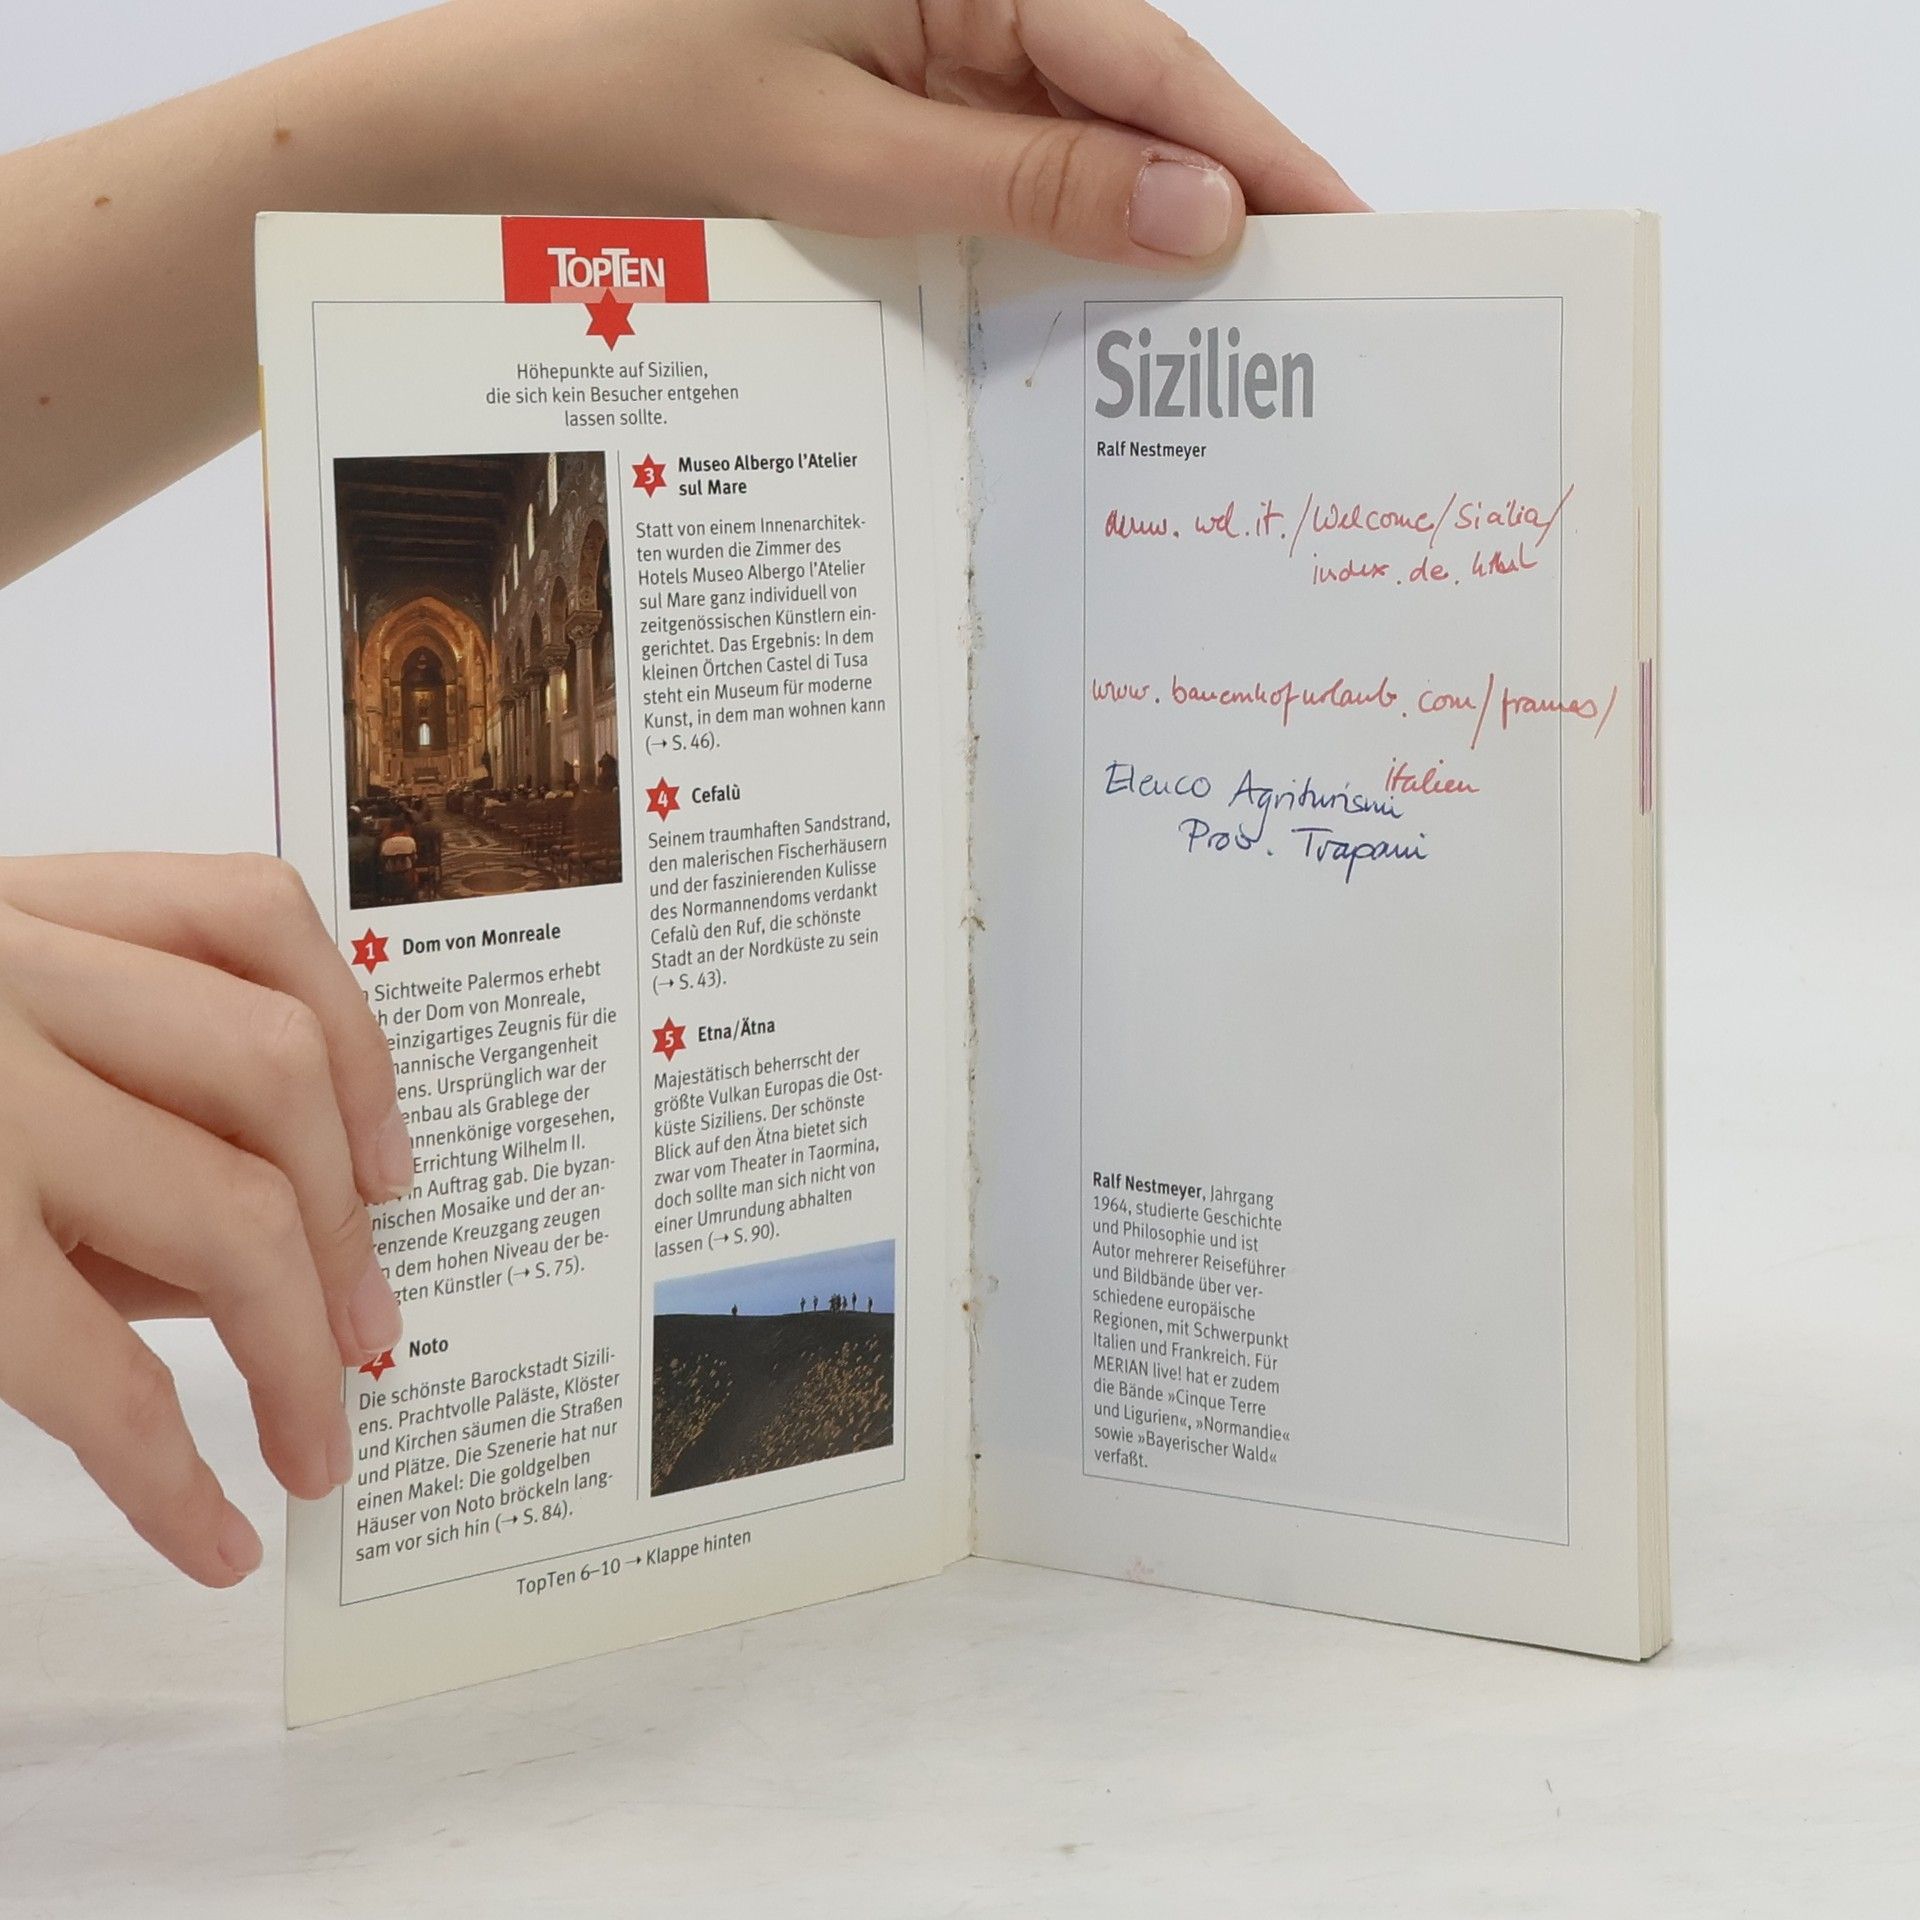 TOPTEN
Höhepunkte auf Sizilien,
die sich kein Besucher entgehen
lassen sollte.
1 Dom von Monreale
Sichtweite Palermos erhebt
der Dom von Monreale,
einzigartiges Zeugnis für die
Vergangenheit
Ursprünglich war der
als Grablege der
vorgesehen,
Errichtung Wilhelm II.
in Auftrag gab. Die byzan-
nischen Mosaike und der an-
renzende Kreuzgang zeugen
dem hohen Niveau der be-
gten Künstler (→ S. 75).
2 Noto
Die schönste Barockstadt Sizili-
ens. Prachtvolle Paläste, Klöster
und Kirchen säumen die Straßen
und Plätze. Die Szenerie hat nur
einen Makel: Die goldgelben
Häuser von Noto bröckeln lang-
sam vor sich hin (→ S. 84).
3 Museo Albergo l'Atelier
sul Mare
Statt von einem Innenarchitek-
ten wurden die Zimmer des
Hotels Museo Albergo l'Atelier
sul Mare ganz individuell von
zeitgenössischen Künstlern ein-
gerichtet. Das Ergebnis: In dem
kleinen Örtchen Castel di Tusa
steht ein Museum für moderne
Kunst, in dem man wohnen kann
(→ S. 46).
4 Cefalù
Seinem traumhaften Sandstrand,
den malerischen Fischerhäusern
und der faszinierenden Kulisse
des Normannendoms verdankt
Cefalù den Ruf, die schönste
Stadt an der Nordküste zu sein
(→ S. 43).
5 Etna/Ätna
Majestätisch beherrscht der
größte Vulkan Europas die Ost-
küste Siziliens. Der schönste
Blick auf den Ätna bietet sich
zwar vom Theater in Taormina,
doch sollte man sich nicht von
einer Umrundung abhalten
lassen (→ S. 90).
TopTen 6–10 → Klappe hinten
Sizilien
Ralf Nestmeyer
www. wel.it./Welcome/Sicilia/
index.de.html
www.bauernhofurlaub.com/frames/
italien
Elenco Agriturismi
Prov. Trapani
Ralf Nestmeyer, Jahrgang
1964, studierte Geschichte
und Philosophie und ist
Autor mehrerer Reiseführer
und Bildbände über ver-
schiedene europäische
Regionen, mit Schwerpunkt
Italien und Frankreich. Für
MERIAN live! hat er zudem
die Bände »Cinque Terre
und Ligurien«, »Normandie«
sowie »Bayerischer Wald«
verfaßt.